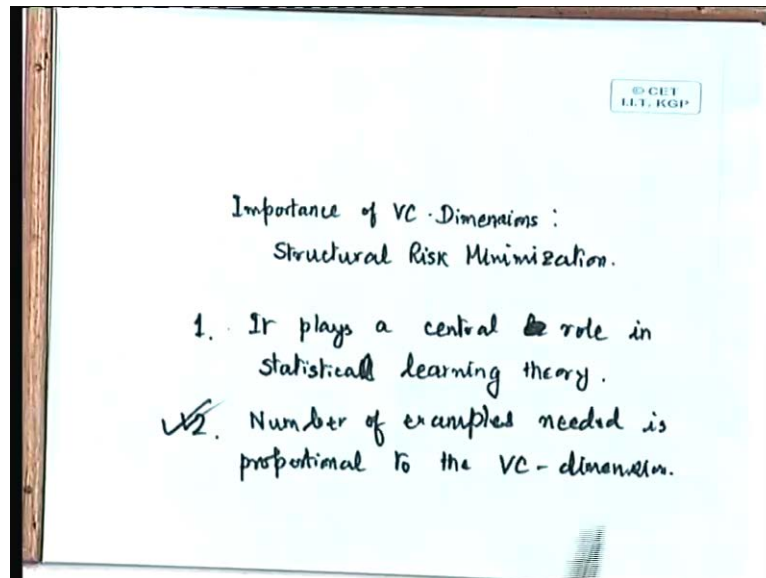 © CET
I.I.T. KGP
Importance of VC-Dimensions:
Structural Risk Minimization.
1. It plays a central role in
statistical learning theory.
2. Number of examples needed is
proportional to the VC-dimension.